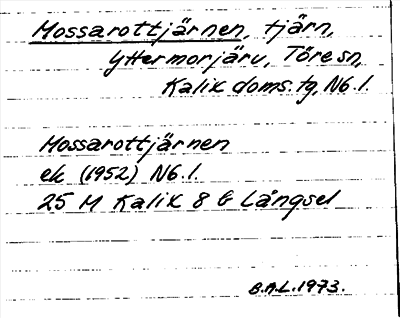 Mossarottjärnen, tjärn,
Yttermorjärv, Töre sn,
Kalix doms. tg, Nb. l.
Mossarottjärnen
ek (1952) Nb. l.
25 M Kalix 8 b Långsel
B.A.L. 1973.